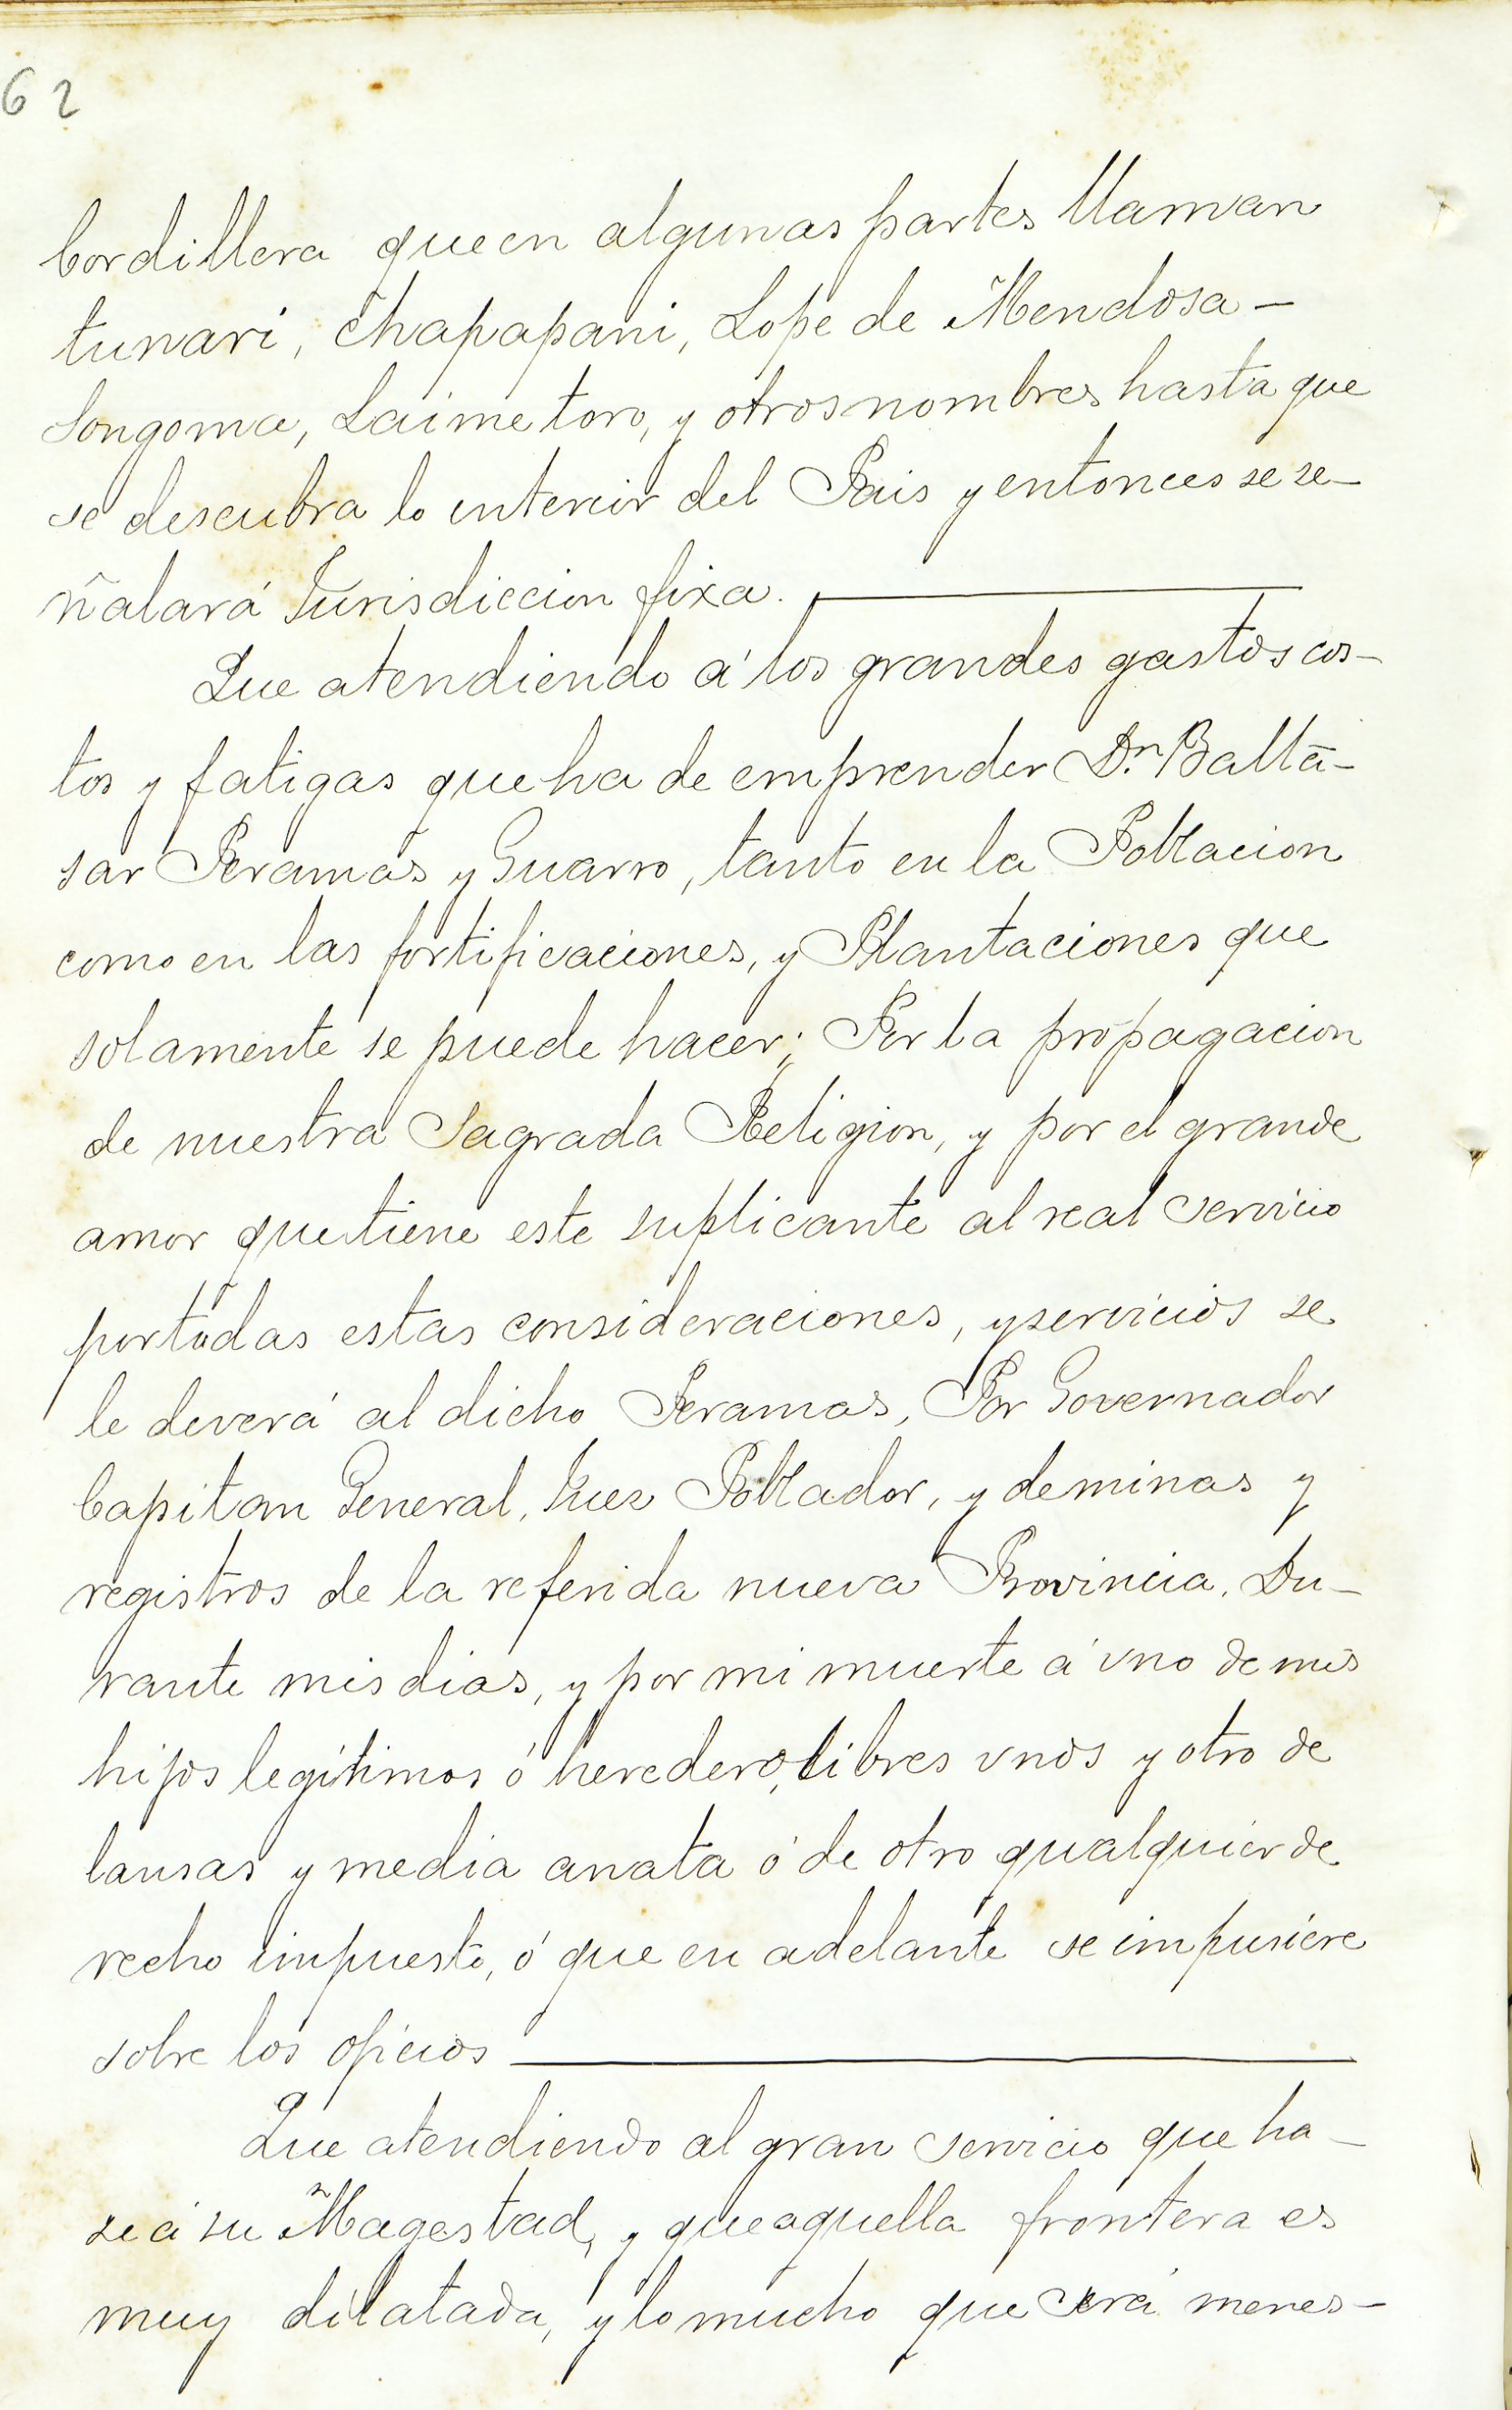 62
Cordillera que en algunas partes llaman
tunari, Chapapani, Lope de Mendosa—
Songoma, Laime toro, y otros nombres hasta que
se descubra lo interior del Pais y entonces se se—
ñalará Jurisdiccion fixa.
Que atendiendo á los grandes gastos cos—
tos y fatigas que ha de emprender Dn. Balta—
sar Peramas y Guarro, tanto en la Poblacion
como en las fortificaciones, y Plantaciones que
solamente se puede hacer; Por la propagacion
de nuestra Sagrada Religion, y por el grande
amor que tiene este suplicante al real servicio
por todas estas consideraciones, y servicios se
le deverá al dicho Peramas, Por Governador
Capitan General, Juez Poblador, y de minas y
registros de la referida nueva Provincia. Du—
rante mis dias, y por mi muerte á vno de mis
hijos legítimos ó heredero, libres vnos y otro de
lansas y media anata ó de otro qualquier de
recho impuesto, ó que en adelante se impusiere
sobre los oficios
Que atendiendo al gran servicio que ha—
se á su Magestad, y que aquella frontera es
muy dilatada, y lo mucho que será menes—